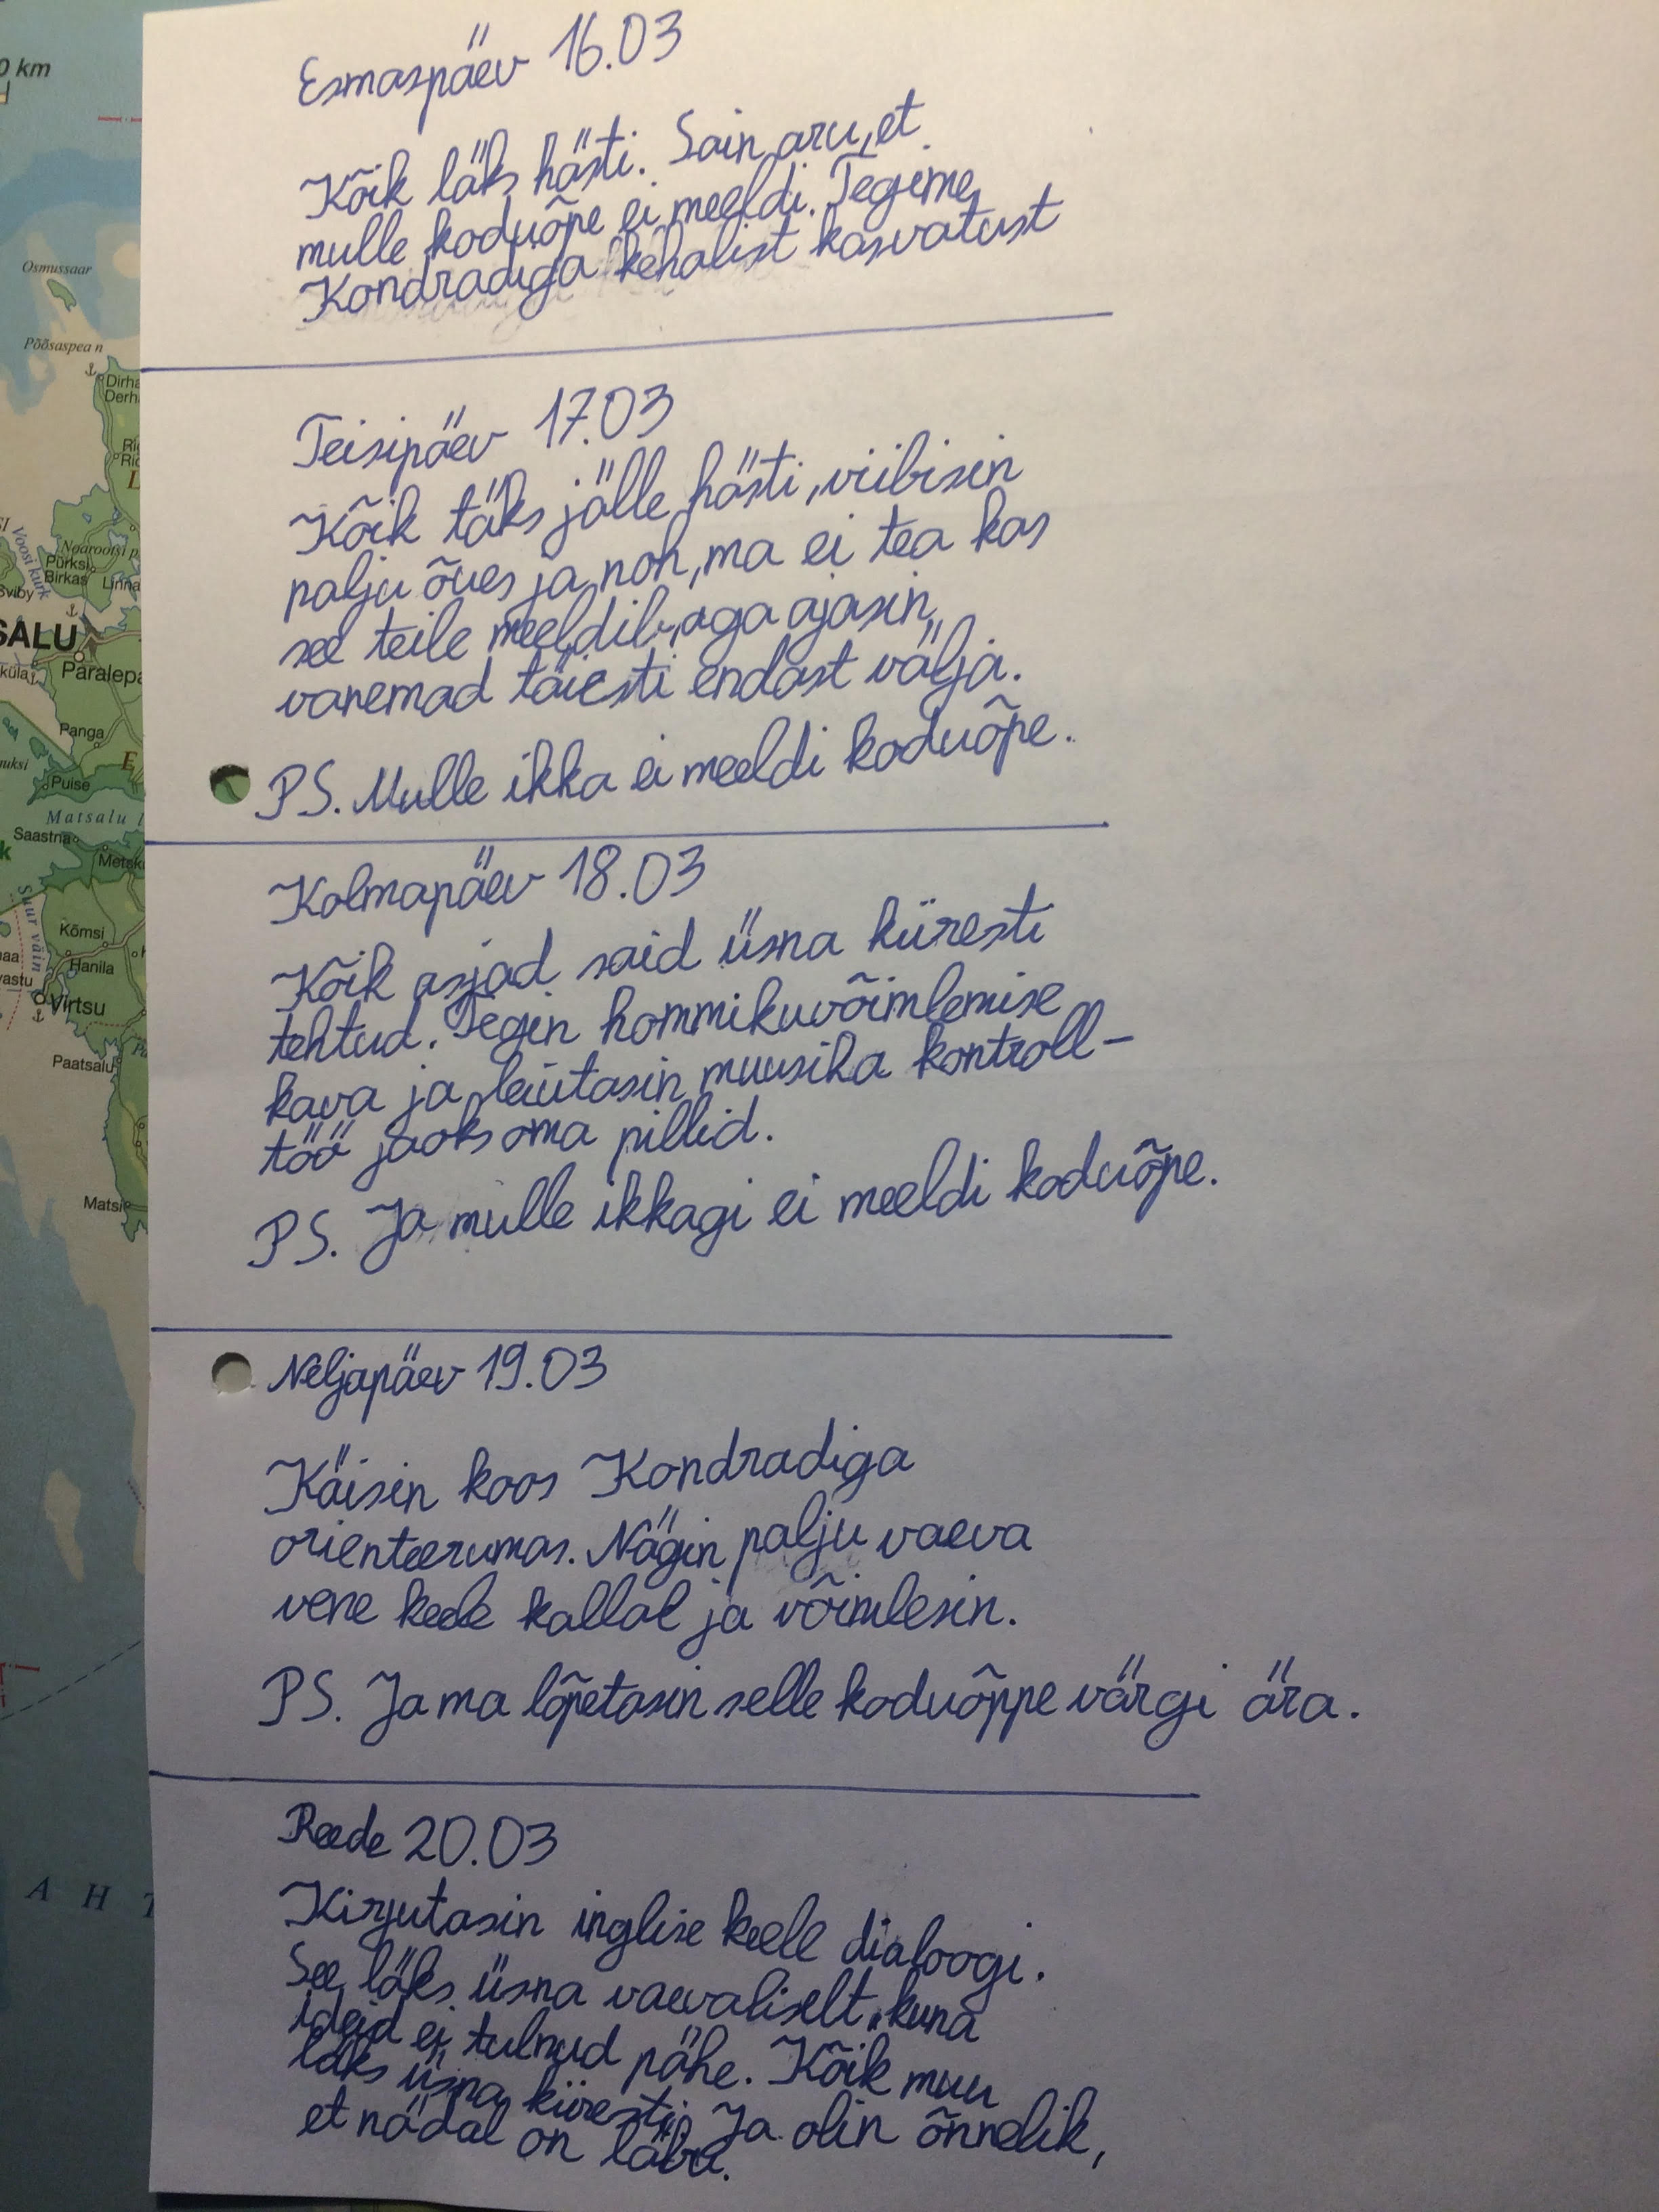 Esmaspäev 16.03
Kõik läks hästi. Sain aru, et
mulle koduõpe ei meeldi. Tegime
Kondradiga kehalist kasvatust
Teisipäev 17.03
Kõik täks jälle hästi, viibisin
palju õues ja noh, ma ei tea kas
see teile meeldib, aga ajasin
vanemad täiesti endast välja.
PS. Mulle ikka ei meeldi koduõpe.
Kolmapäev 18.03
Kõik asjad said üsna kiiresti
tehtud. Tegin hommikuvõimlemise
kava ja leiutasin muusika kontroll-
töö jaoks oma pillid.
PS. Ja mulle ikkagi ei meeldi koduõpe.
Neljapäev 19.03
Käisin koos Kondradiga
orienteerumas. Nägin palju vaeva
vene keele kallal ja võimlesin.
PS. Ja ma lõpetasin selle koduõppe värgi ära.
Reede 20.03
Kirjutasin inglise keele dialoogi.
See läks üsna vaevaliselt, kuna
ideid ei tulnud pähe. Kõik muu
läks üsna kiiresti. Ja olin õnnelik,
et nädal on läbi.
0 km
Osmussaar
Põõsaspea n
Dirha
Derh
Noarootsi p
Pürksi
Birkas
Linna
Sviby
Voosi kurk
SALU
küla
Paralepa
Panga
Puise
Matsalu l
Saastna
Metsk
Suur väin
Kõmsi
Hanila
vastu
Virtsu
Paatsalu
Matsi
A H T